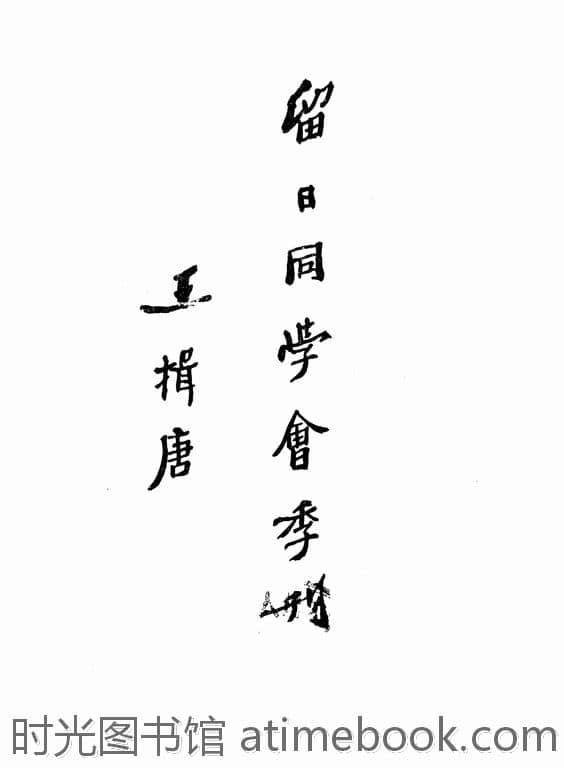 留日同学會季刊
王揖唐
时光图书馆 atimebook.com